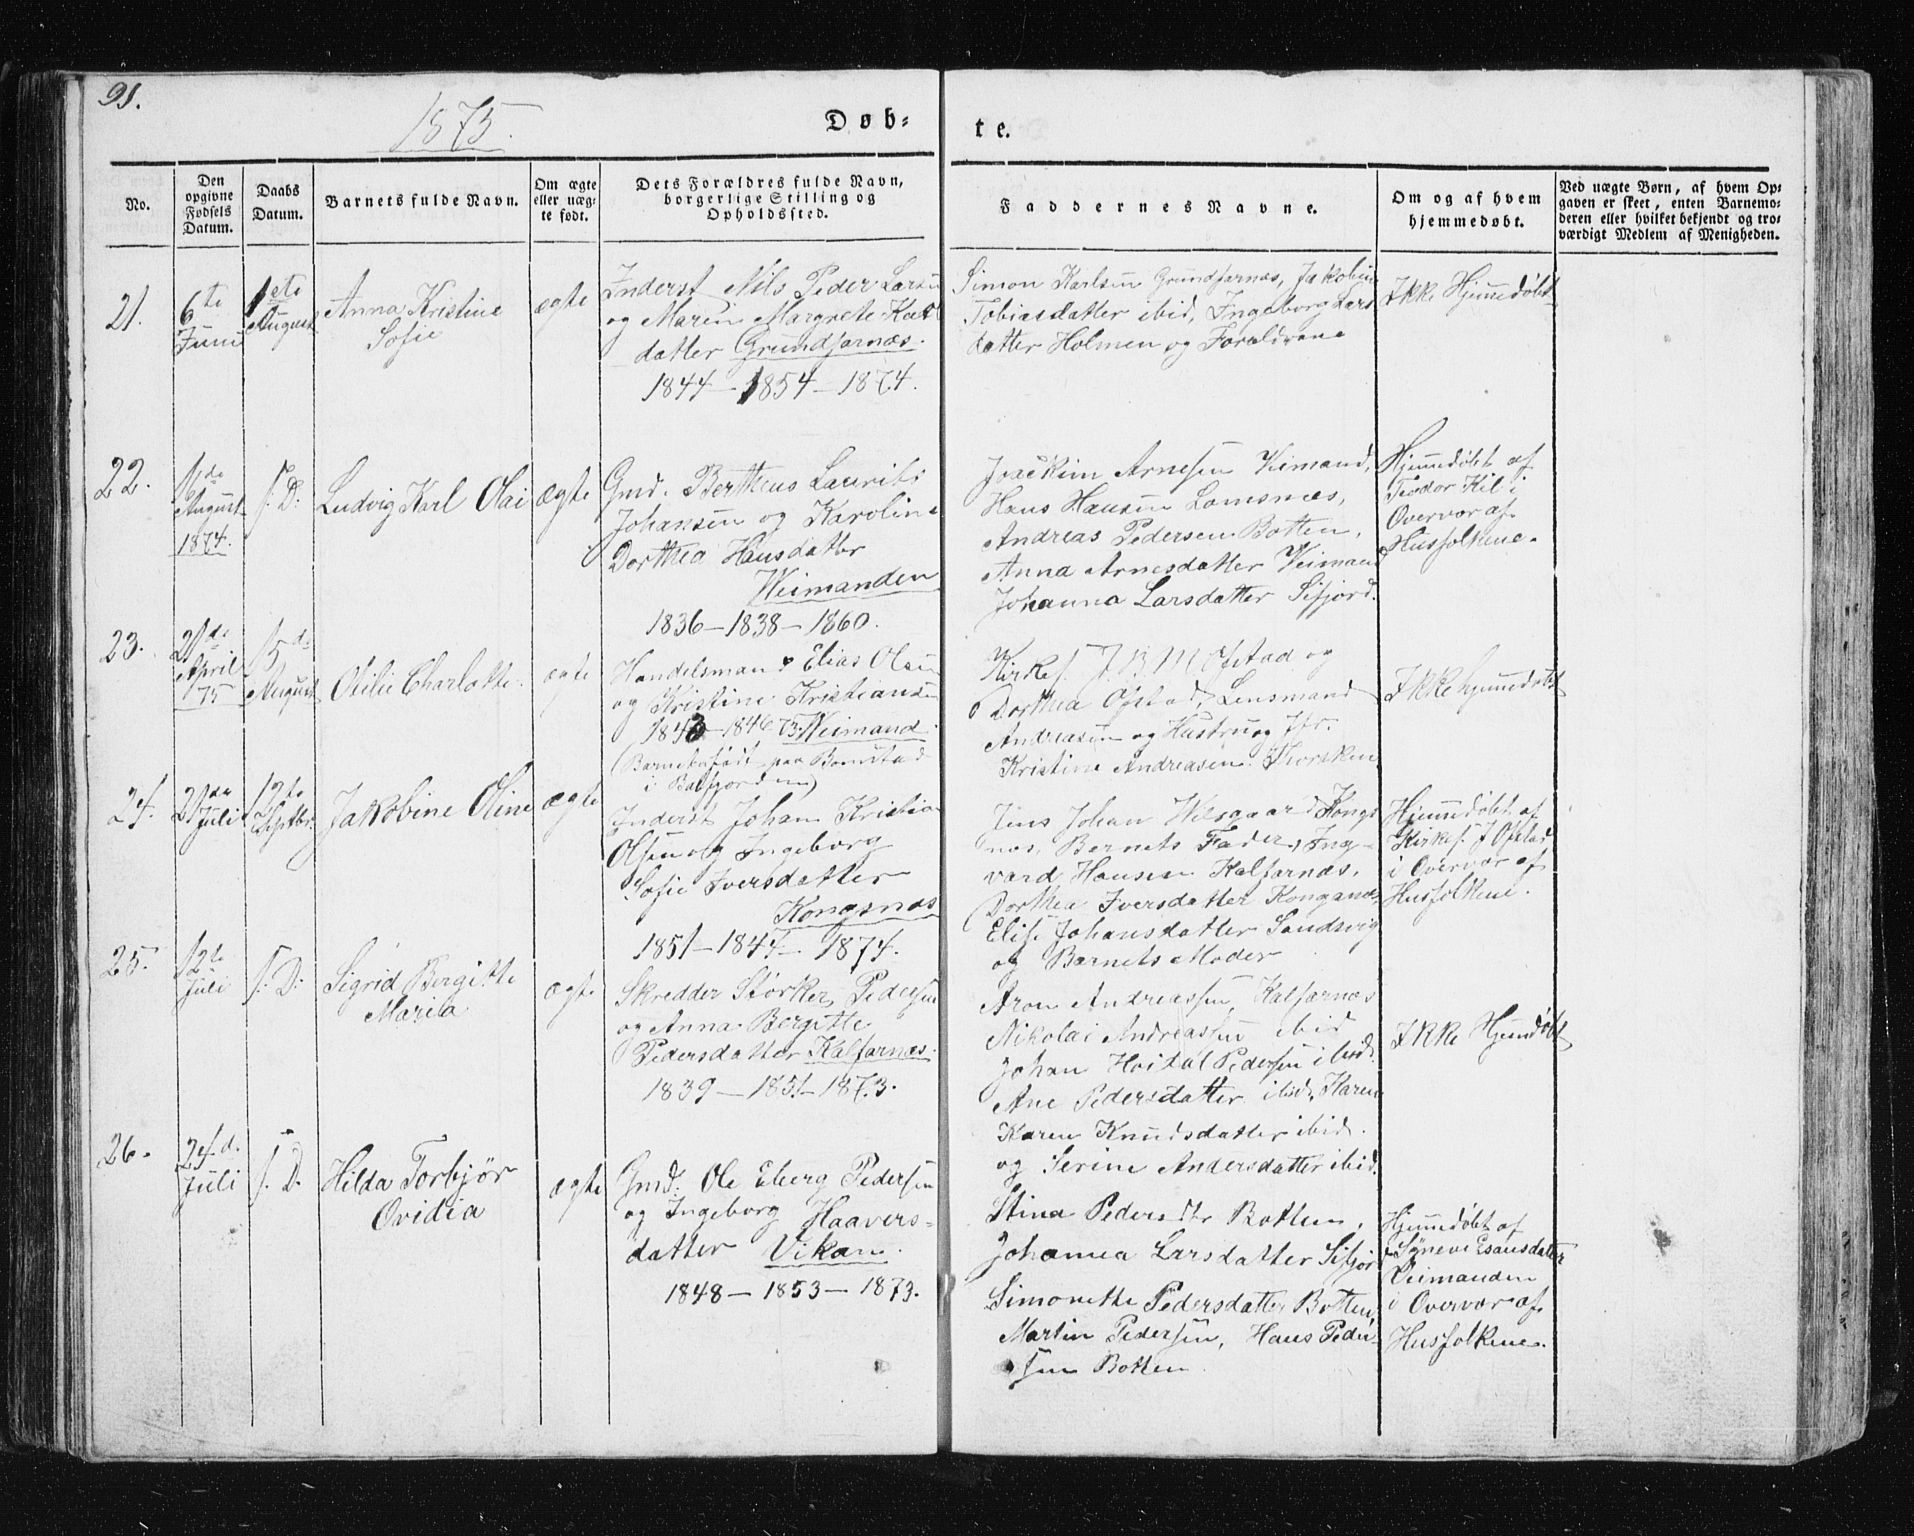 91.
1875.
Døb-
te.
No.
Den opgivne Fødsels Datum.
Daabs Datum.
Barnets fulde Navn.
Om ægte eller uæg-
te født.
Dets Forældres fulde Navn,
borgerlige Stilling og
Opholdssted.
Faddernes Navne.
Om og af hvem
hjemmedøbt.
Ved uægte Børn, af hvem Op-
gaven er skeet, enten Barnemo-
deren eller hvilket bekjendt og tro-
værdigt Medlem af Menigheden.
21.
6te
Juni
1ste
August
Anna Kristine
Sofie
ægte
Inderst Nils Peder Larsen
og Maren Margrete Karl
datter Grundfarnæs.
1844 - 1854 - 1874.
Simon Karlsen Grundfarnæs, Jakobine
Tobiasdatter ibid, Ingeborg Lars
datter Holmen og Forældrene
Ikke Hjemmedøbt
22.
August
1874.
s. D:
Ludvig Karl Olai
Ægte
Gmd. Bertheus Laurits
Johansen og Karoline
Dorthea Hansdatter
Weimanden
1836 - 1838 - 1860.
Joackim Arnesen Veimand,
Hans Hansen Lomsnæs,
Andreas Pedersen Botten,
Anna Arnesdatter Veimand
Johanna Larsdatter Sifjord.
Hjemmedøbt af
Teodor Kil i
Overvær af
Husfolkene.
23.
21de
April
75
15de
August
Otilie Charlotte.
ægte
Handelsmand Elias Olsen
og Kristine Kristiansen
1843 - 1846 73 Weimand.
(Barnet født paa Bomstad
i Balsfjorden)
Kirkes. J. B. M Ofstad og
Dorthea Ofstad, Lensmand
Andreasen og Hustru og Jfr.
Kristine Andreasen Thorsken
Ikke hjemmedøbt
24.
21de
Juli
12te
Septbr.
Jakobine Oline
ægte
Inderst Johan Kristian
Olsen og Ingeborg
Sofie Iversdatter
Kongsnæs
1851 - 1844 - 1874.
Jens Johan Wilsgaard Kongs
næs, Bernets Fader, Ing-
vard Hansen Kalfarnæs,
Dorthea Iversdatter Kongsnæs,
Elise Johansdatter Sandsvig
og Barnets Moder
Hjemmedøbt af
Kirkes. J Ofstad
i Overvær af
Husfolkene.
25.
12te
Juli
s. D:
Sigrid Bergitte
Maria
ægte
Skredder Størker Pedersen
og Anna Bergitte
Pedersdatter Kalfarnæs.
1839 - 1851 - 1873.
Aron Andreassen Kalfarnæs
Nikolai Andreassen ibid
Johan Hoidal Pedersen ibid.
Ane Pedersdatter ibid, Karen
Karen Knudsdatter ibid.
og Serine Andersdatter ibid.
Ikke Hjemdøbt
26.
24d.
Juli
s. D.
Hilda Torbjør
Ovidia
ægte
Gmd. Ole Eberg Pedersen
og Ingeborg Haavers-
datter Vikan.
1848 - 1853 - 1873.
Stina Pedersdtr Botten,
Johanna Larsdatter Sifjord
Simonette Pedersdatter Botten,
Martin Pedersen, Hans Peder-
sen Botten
Hjemmedøbt af
Syneve Esaisdatter
Veimanden
i Overvær af
Husfolkene.